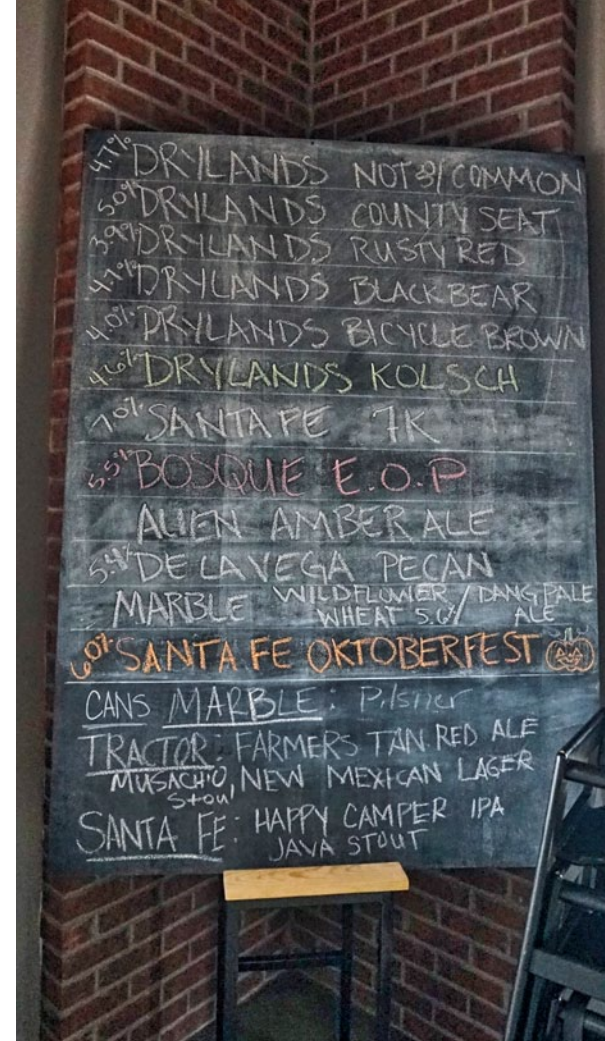 4.7% DRYLANDS NOT SO/COMMON
5.0% DRYLANDS COUNTY SEAT
3.9% DRYLANDS RUSTY RED
4.7% DRYLANDS BLACK BEAR
4.0% DRYLANDS BICYCLE BROWN
4.6% DRYLANDS KOLSCH
7.0% SANTA FE 7K
5.5% BOSQUE E.O.P
ALIEN AMBER ALE
5.4% DE LA VEGA PECAN
MARBLE WILDFLOWER WHEAT 5.0% / DANG PALE ALE
6.0% SANTA FE OKTOBERFEST
CANS MARBLE: Pilsner
TRACTOR: FARMERS TAN RED ALE
MUSACHIO Stout, NEW MEXICAN LAGER
SANTA FE: HAPPY CAMPER IPA
JAVA STOUT